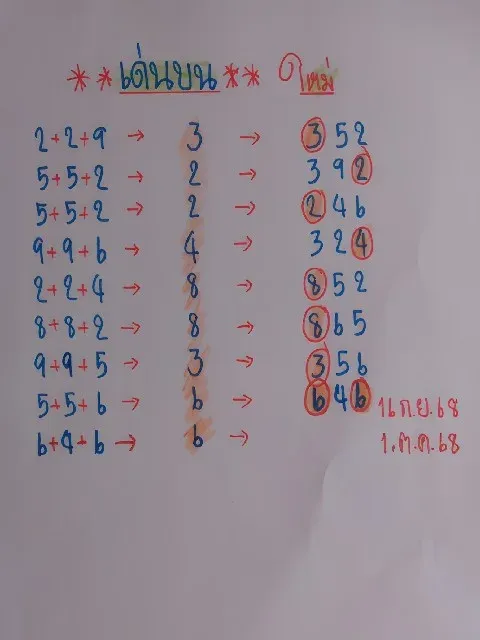 ** เด่นบน ** ใหม่
2+2+9 → 3 → 352
5+5+2 → 2 → 392
5+5+2 → 2 → 246
9+9+6 → 4 → 324
2+2+4 → 8 → 852
8+8+2 → 8 → 865
9+9+5 → 3 → 356
5+5+6 → 6 → 646 16 ก.ย. 68
6+4+6 → 6 → 1. ต.ค. 68